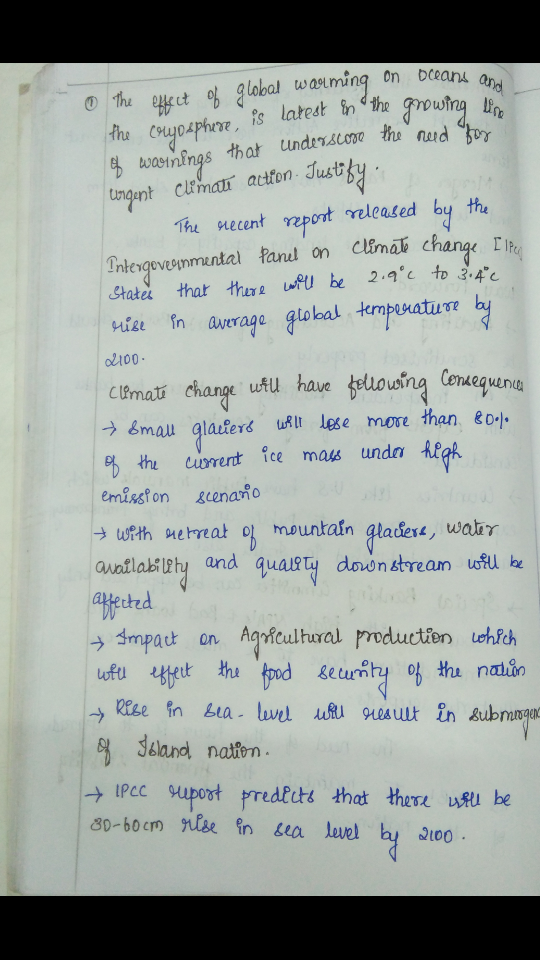 ① The effect of global warming on oceans and
the cryosphere, is latest in the growing line
of warnings that underscore the need for
urgent climate action. Justify.
The recent report released by the
Intergovernmental Panel on climate change [IPCC]
states that there will be 2.9°c to 3.4°c
rise in average global temperature by
2100.
Climate change will have following Consequences
→ Small glaciers will lose more than 80%
of the current ice mass under high
emission scenario
→ With retreat of mountain glaciers, water
availability and quality downstream will be
affected
→ Impact on Agricultural production which
will effect the food security of the nation
→ Rise in sea-level will result in submergence
of Island nation.
→ IPCC report predicts that there will be
30-60cm rise in sea level by 2100.